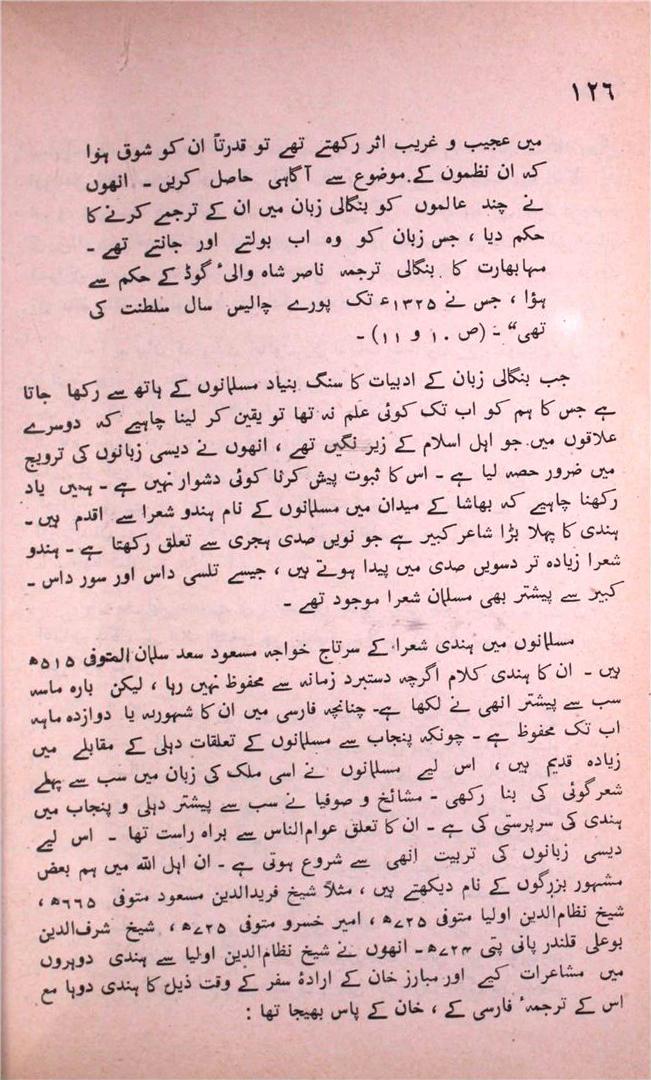 ١٢٦
میں عجیب و غریب اثر رکھتے تھے تو قدرتاً ان کو شوق ہؤا
کہ ان نظموں کے موضوع سے آگاہی حاصل کریں ۔ انھوں
نے چند عالموں کو بنگالی زبان میں ان کے ترجمے کرنے کا
حکم دیا ، جس زبان کو وہ اب بولتے اور جانتے تھے ۔
مہابھارت کا بنگالی ترجمہ ناصر شاہ والیٔ گوڈ کے حکم سے
ہؤا ، جس نے ۱۳۲۵ء تک پورے چالیس سال سلطنت کی
تھی“ ۔ (ص ۱۰ و ۱۱) ۔
جب بنگالی زبان کے ادبیات کا سنگ بنیاد مسلمانوں کے ہاتھ سے رکھا جاتا
ہے جس کا ہم کو اب تک کوئی علم نہ تھا تو یقین کر لینا چاہیے کہ دوسرے
علاقوں میں جو اہل اسلام کے زیر نگیں تھے ، انھوں نے دیسی زبانوں کی ترویج
میں ضرور حصہ لیا ہے ۔ اس کا ثبوت پیش کرنا کوئی دشوار نہیں ہے ۔ ہمیں یاد
رکھنا چاہیے کہ بھاشا کے میدان میں مسلمانوں کے نام ہندو شعرا سے اقدم ہیں ۔
ہندی کا پہلا بڑا شاعر کبیر ہے جو نویں صدی ہجری سے تعلق رکھتا ہے ۔ ہندو
شعرا زیادہ تر دسویں صدی میں پیدا ہوتے ہیں ، جیسے تلسی داس اور سور داس ۔
کبیر سے پیشتر بھی مسلمان شعرا موجود تھے ۔
مسلمانوں میں ہندی شعرا کے سرتاج خواجہ مسعود سعد سلمان المتوفی ۵۱۵ھ
ہیں ۔ ان کا ہندی کلام اگرچہ دستبرد زمانہ سے محفوظ نہیں رہا ، لیکن بارہ ماسہ
سب سے پیشتر انھی نے لکھا ہے۔ چنانچہ فارسی میں ان کا شہوریہ یا دوازدہ ماہہ
اب تک محفوظ ہے ۔ چونکہ پنجاب سے مسلمانوں کے تعلقات دہلی کے مقابلے میں
زیادہ قدیم ہیں ، اس لیے مسلمانوں نے اسی ملک کی زبان میں سب سے پہلے
شعرگوئی کی بنا رکھی ۔ مشائخ و صوفیا نے سب سے پیشتر دہلی و پنجاب میں
ہندی کی سرپرستی کی ہے ۔ ان کا تعلق عوام‌الناس سے براہ راست تھا ۔ اس لیے
دیسی زبانوں کی تربیت انھی سے شروع ہوتی ہے ۔ ان اہل اللہ میں ہم بعض
مشہور بزرگوں کے نام دیکھتے ہیں ، مثلاً شیخ فریدالدین مسعود متوفی ۶۶۵ھ ،
شیخ نظام‌الدین اولیا متوفی ۷۲۵ھ ، امیر خسرو متوفی ۷۲۵ھ ، شیخ شرف‌الدین
بوعلی قلندر پانی پتی ۷۲۴ھ ۔ انھوں نے شیخ نظام‌الدین اولیا سے ہندی دوہروں
میں مشاعرات کیے اور مبارز خان کے ارادۂ سفر کے وقت ذیل کا ہندی دوہا مع
اس کے ترجمۂ فارسی کے ، خان کے پاس بھیجا تھا :